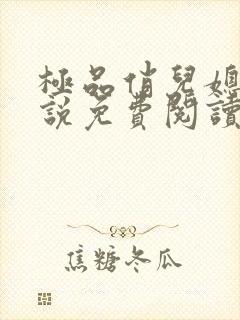 極品俏兒媳
說免費閱讀
焦糖冬瓜